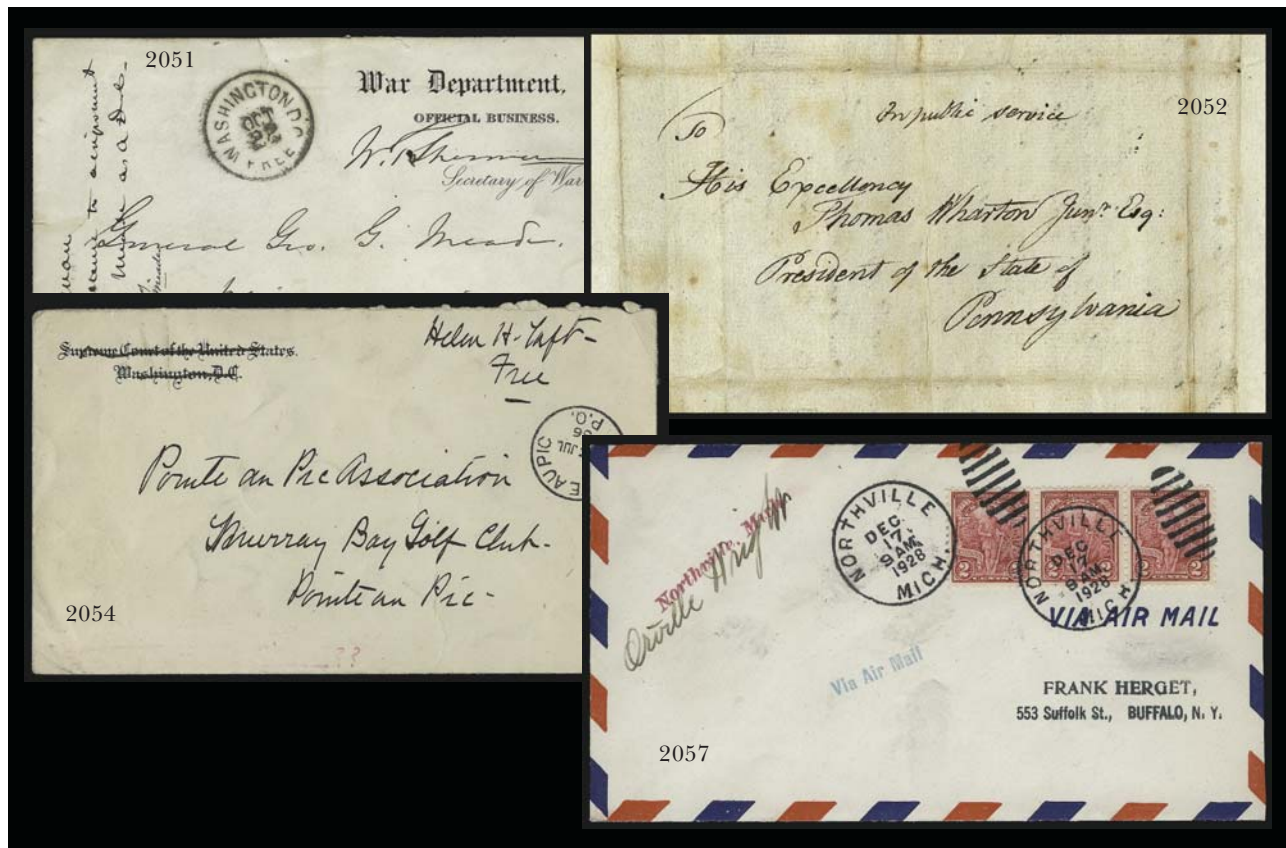 2051
WASHINGTON D.C.
OCT
FREE
War Department,
OFFICIAL BUSINESS.
W. T. Sherman
Secretary of War
General Geo. G. Meade.
2052
In public service
To
His Excellency
Thomas Wharton Junr. Esq:
President of the State of
Pennsylvania
Supreme Court of the United States.
Washington, D.C.
Helen H. Taft-
Free
E AU PIC
JUL
26
P.Q.
Pointe au Pic Association
Murray Bay Golf Club-
Pointe au Pic-
2054
Northville, Mich.
Orville Wright
NORTHVILLE
DEC.
17
9 AM
1928
MICH.
NORTHVILLE
DEC
17
9 AM
1928
MICH
2 2
VIA AIR MAIL
Via Air Mail
FRANK HERGET,
553 Suffolk St., BUFFALO, N. Y.
2057